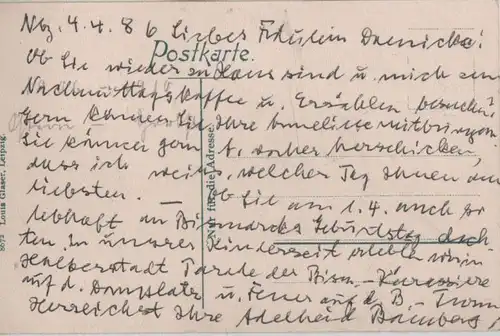 Nbg. 4.4.86 Liebes Fräulein
Postkarte.
Ob Sie wieder zu Haus sind u. mich zum
Nachmittagskaffee u. Erzählen besuchen?
Gern können Sie Ihre mitbringen.
Sie können gern vorher herschicken,
dass ich weiss, welcher Tag Ihnen am
liebsten. Ob Sie am 1.4. auch so
lebhaft an Bismarcks Geburtstag dach-
ten. In unserer Kinderzeit erlebte ich in
Halberstadt Parade der Bism.-Kürassiere
auf d. Domplatz u. Feuer auf d. B.-Turm
Herzlichst Ihre Adelheid Bamberg
Nur für die Adresse.
Louis Glaser, Leipzig.